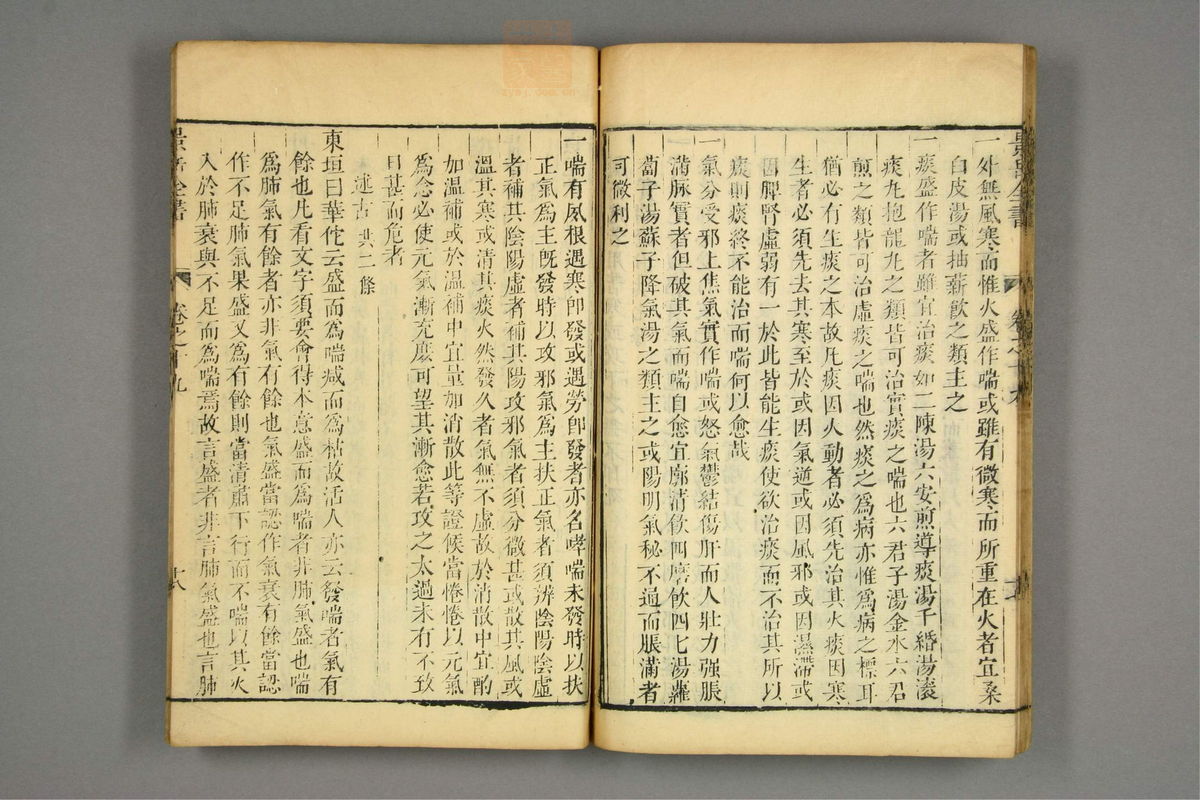 一外無風寒而惟火盛作喘或雖有微寒而所重在火者宜桑
白皮湯或抽薪飲之類主之
一痰盛作喘者雖宜治痰如二陳湯六安煎導痰湯千緡湯滾
痰丸抱龍丸之類皆可治實痰之喘也六君子湯金水六君
煎之類皆可治虛痰之喘也然痰之爲病亦惟爲病之標耳
猶必有生痰之本故凡痰因火動者必須先治其火痰因寒
生者必須先去其寒至於或因氣逆或因風邪或因濕滯或
因脾腎虛弱有一於此皆能生痰使欲治痰而不治其所以
痰則痰終不能治而喘何以愈哉
一氣分受邪上焦氣實作喘或怒氣鬱結傷肝而人壯力强脹
滿脉實者但破其氣而喘自愈宜廓清飲四磨飲四七湯蘿
蔔子湯蘇子降氣湯之類主之或陽明氣秘不通而脹滿者
可微利之
一喘有夙根遇寒卽發或遇勞卽發者亦名哮喘未發時以扶
正氣爲主旣發時以攻邪氣爲主扶正氣者須辨陰陽陰虛
者補其陰陽虛者補其陽攻邪氣者須分微甚或散其風或
溫其寒或清其痰火然發久者氣無不虛故於消散中宜酌
加溫補或於溫補中宜量加消散此等證候當惓惓以元氣
爲念必使元氣漸充庶可望其漸愈若攻之太過未有不致
日甚而危者
述古共二條
東垣曰華佗云盛而爲喘减而爲枯故活人亦云發喘者氣有
餘也凡看文字須要會得本意盛而爲喘者非肺氣盛也喘
爲肺氣有餘者亦非氣有餘也氣盛當認作氣衰有餘當認
作不足肺氣果盛又爲有餘則當清肅下行而不喘以其火
入於肺衰與不足而爲喘焉故言盛者非言肺氣盛也言肺
景岳全書
卷之十九
十八